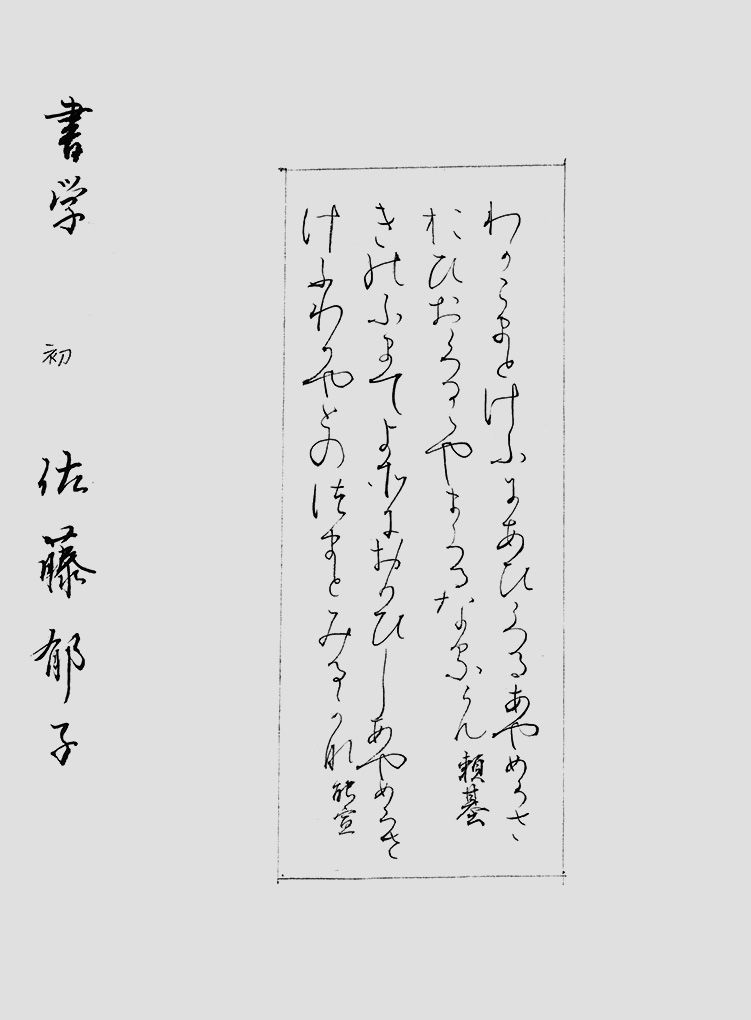 わかこまとけふにあひくるあやめくさ
おひおくるゝやまくるなるらん 頼基
きのふまてよそにおもひしあやめくさ
けふわかやとのつまとみるかな 能宣
書学 初 佐藤郁子